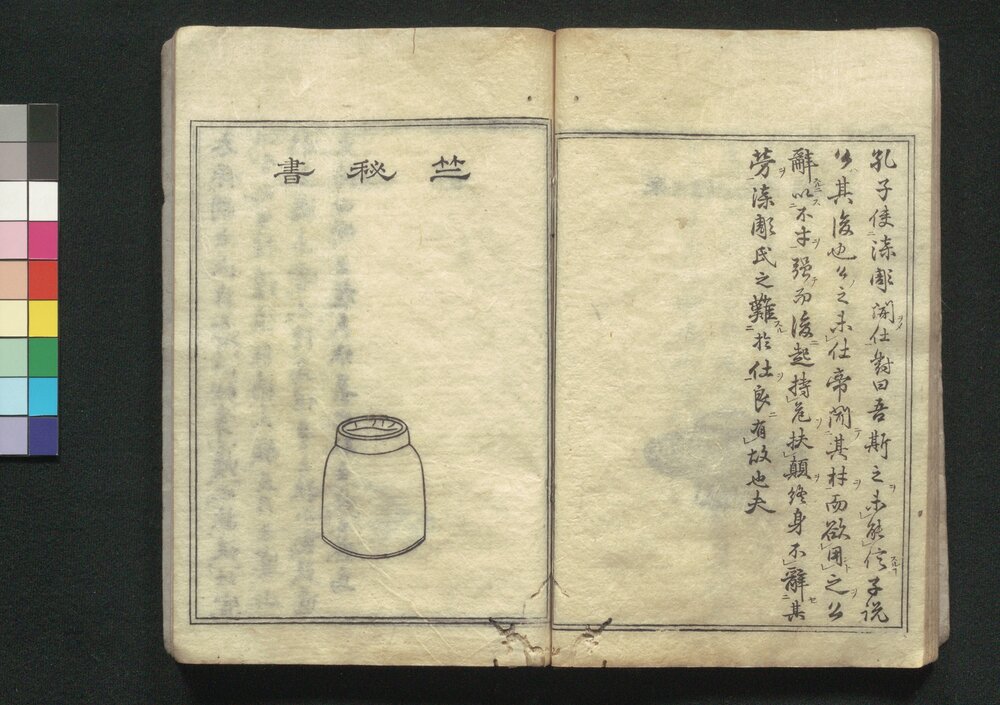 孔子使漆彫開仕對曰吾斯之未能信子説
公其後也公之未仕帝聞其材而欲用之公
辭以不才强而後起持危扶顛終身不辭其
労漆彫氏之難於仕良有故也夫
竺秘書